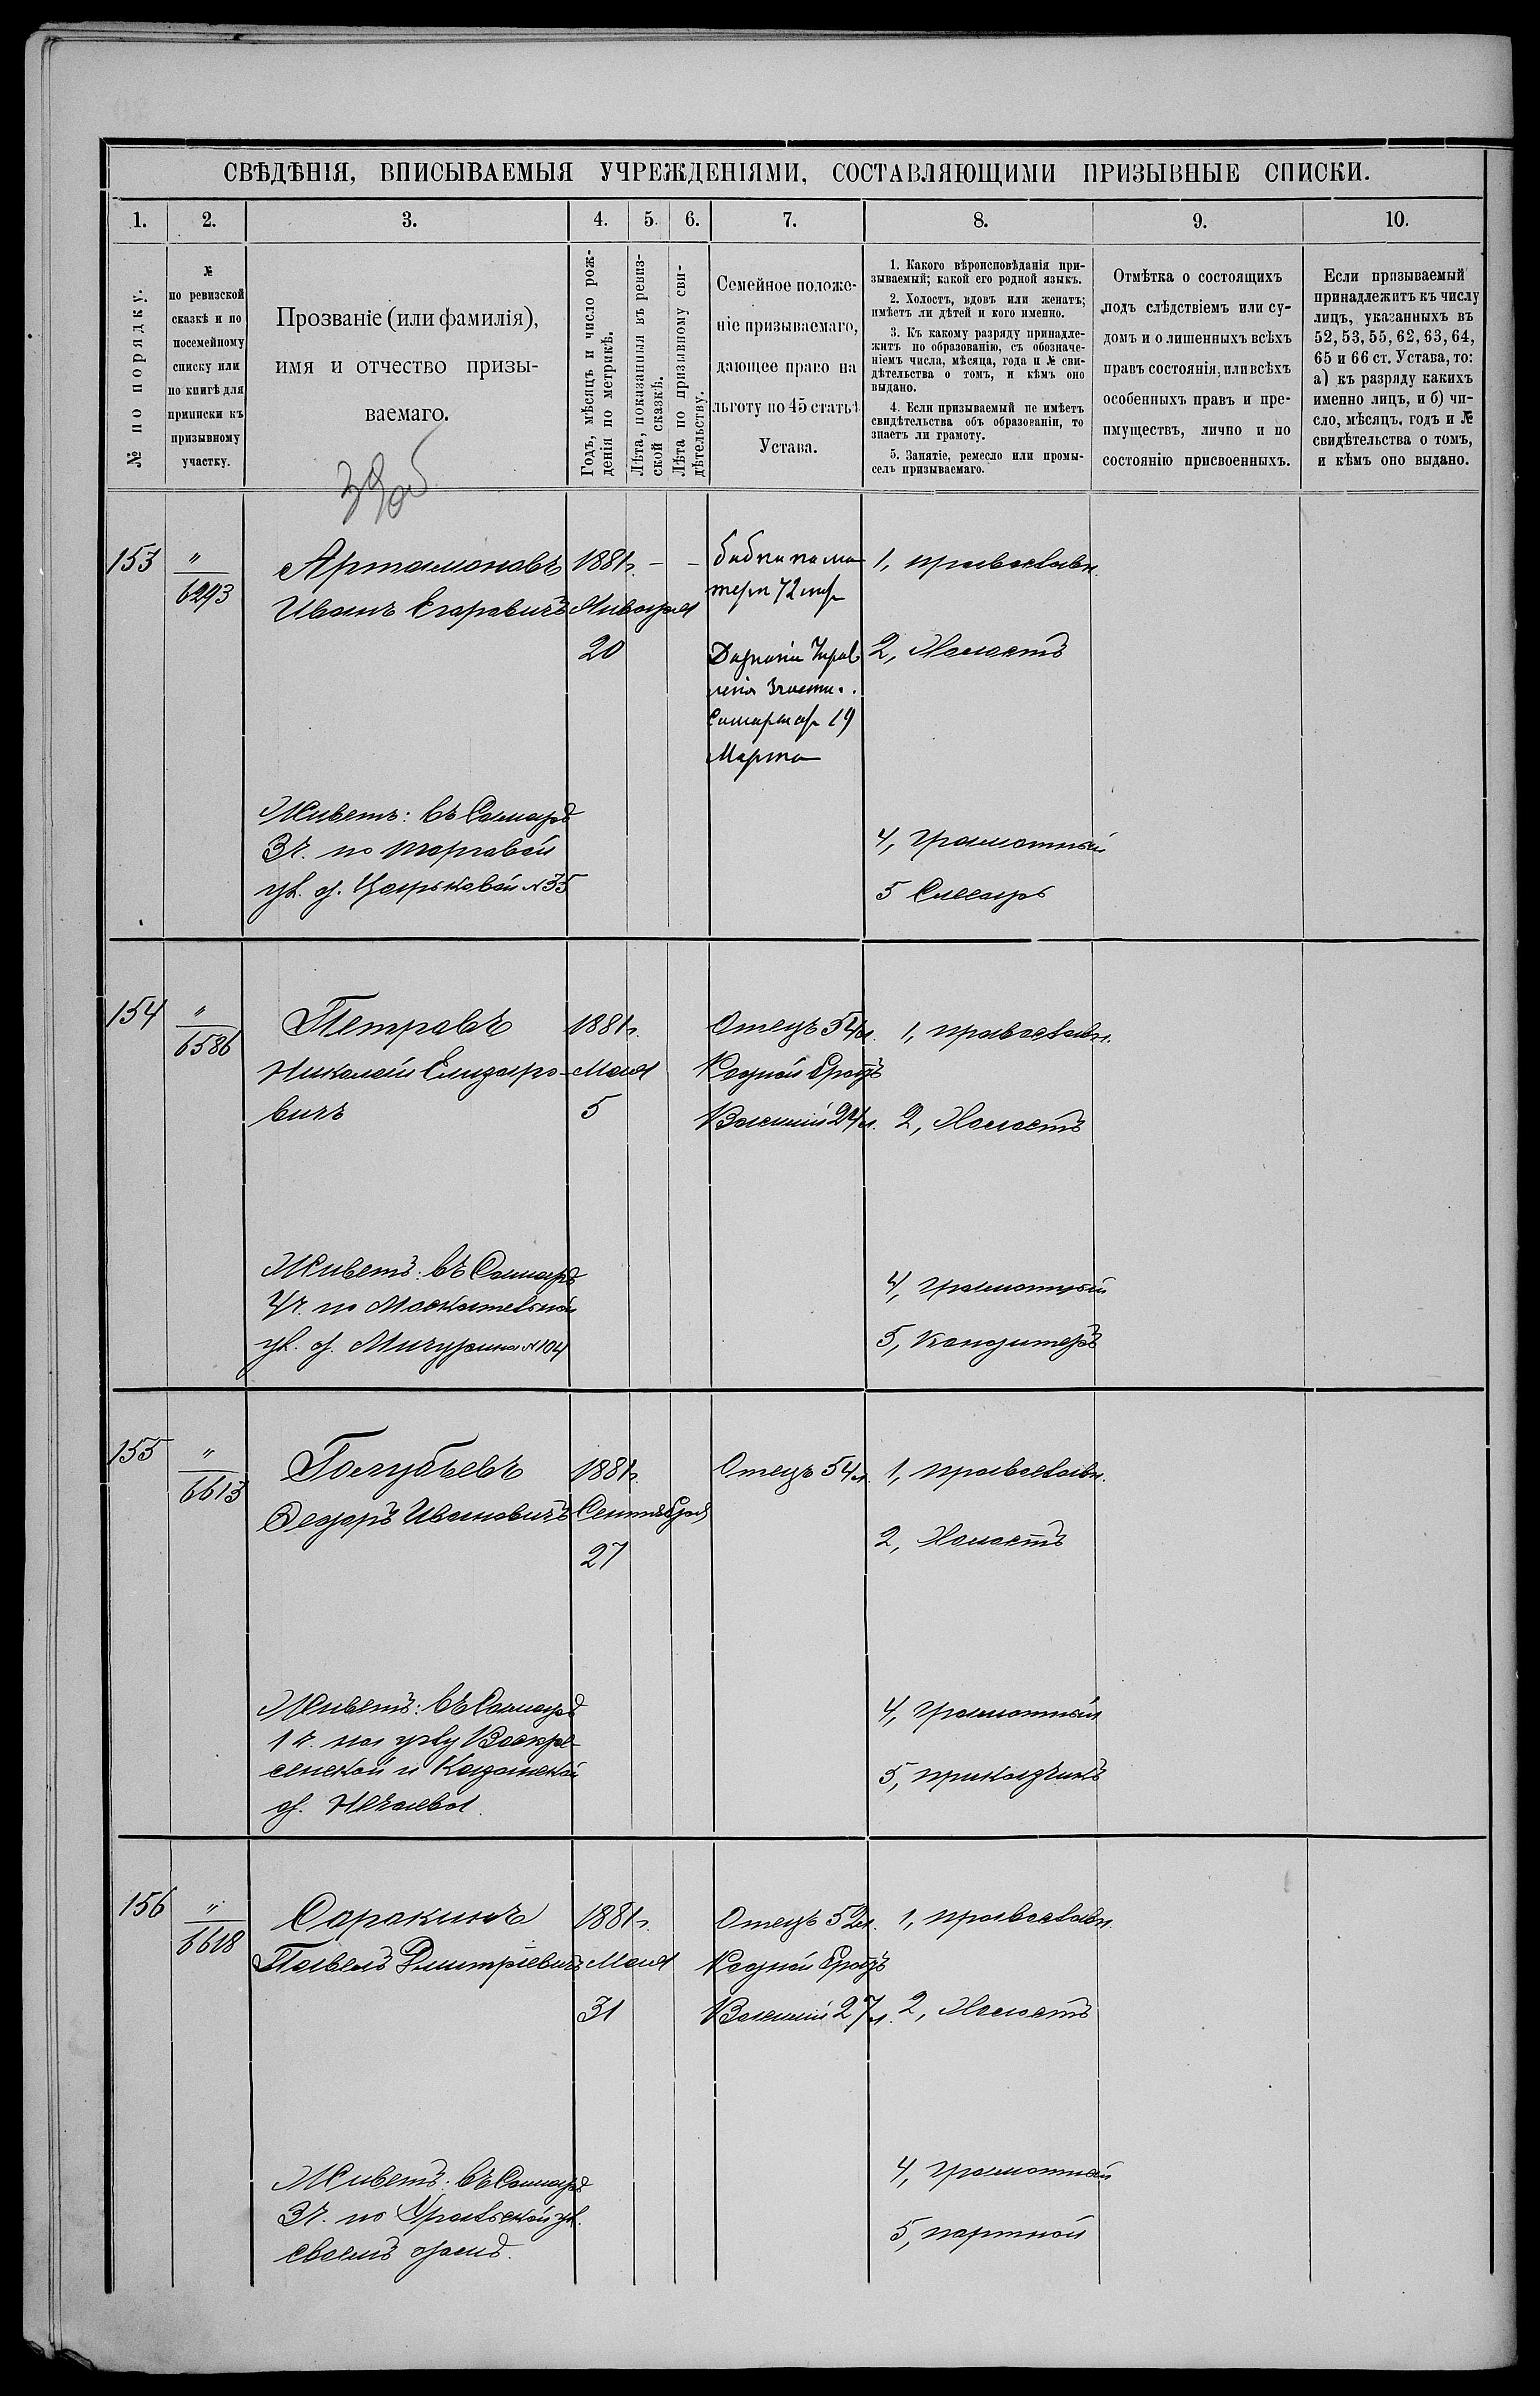 СВѢДѢНІЯ, ВПИСЫВАЕМЫЯ УЧРЕЖДЕНІЯМИ, СОСТАВЛЯЮЩИМИ ПРИЗЫВНЫЕ СПИСКИ.
1. 2. 3. 4. 5. 6. 7. 8. 9. 10.
№ по порядку.
№
по ревизской
сказкѣ и по
посемейному
списку или
по книгѣ для
приписки къ
призывному
участку.
Прозваніе (или фамилія),
имя и отчество призы-
ваемаго.
Годъ, мѣсяцъ и число рож-
денія по метрикѣ.
Лѣта, показанныя въ ревиз-
ской сказкѣ.
Лѣта по призывному сви-
дѣтельству.
Семейное положе-
ніе призываемаго,
дающее право на
льготу по 45 статьѣ
Устава.
1. Какого вѣроисповѣданія при-
зываемый; какой его родной языкъ.
2. Холостъ, вдовъ или женатъ;
имѣетъ ли дѣтей и кого именно.
3. Къ какому разряду принадле-
житъ по образованію, съ обозначе-
ніемъ числа, мѣсяца, года и № сви-
дѣтельства о томъ, и кѣмъ оно
выдано.
4. Если призываемый не имѣетъ
свидѣтельства объ образованіи, то
знаетъ ли грамоту.
5. Занятіе, ремесло или промы-
селъ призываемаго.
Отмѣтка о состоящихъ
подъ слѣдствіемъ или су-
домъ и о лишенныхъ всѣхъ
правъ состоянія, или всѣхъ
особенныхъ правъ и пре-
имуществъ, лично и по
состоянію присвоенныхъ.
Если призываемый
принадлежитъ къ числу
лицъ, указанныхъ въ
52, 53, 55, 62, 63, 64,
65 и 66 ст. Устава, то:
а) къ разряду какихъ
именно лицъ, и б) чи-
сло, мѣсяцъ, годъ и №
свидѣтельства о томъ,
и кѣмъ оно выдано.
153
"
6293
Артамоновъ
Иванъ Егоровичъ
1881г. – –
Января
20
бабка по ма
тери 72
части.
19
Марта
1, православн.
2, Холостъ
4, грамотный
5 Слесарь
Живетъ: въ Самарѣ
3ч. по торговой
ул. д. Царьковой №35
154
"
6586
Петровъ
Николай Елизаро-
вичъ
1881г.
Мая
5
Отецъ 54л.
Родной братъ
Василий 24л.
1, православн.
2, Холостъ
4, грамотный
5, Кондитеръ
Живетъ: въ Самарѣ
4ч. по Москательной
ул. д. Мичурина №104
155
"
6613
Голубьевъ
Федоръ Ивановичъ
1881г.
Сентября
27
Отецъ 54л.
1, православн.
2, Холостъ
4, грамотный
5, прикащикъ
Живетъ: въ Самарѣ
1ч. на углу Воскре-
сенской и Казанской
д. Нечаева
156
"
6618
Сорокинъ
Павелъ Дмитріевичъ
1881г.
Мая
31
Отецъ 52л.
Родной братъ
Василий 27л.
1, православн.
2, Холостъ
4, грамотный
5, портной
Живетъ: въ Самарѣ
3ч. по Уральской ул.
своемъ домѣ.